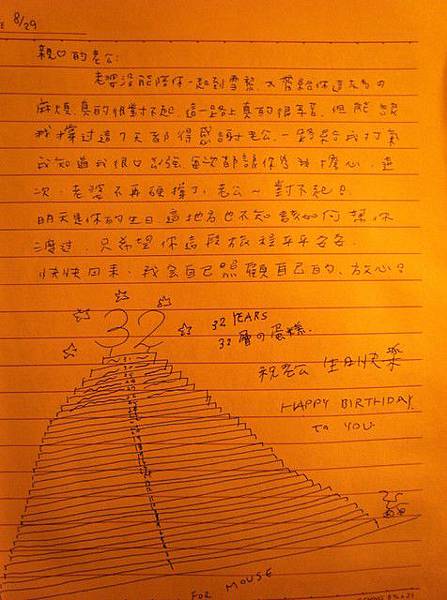 8/29
親♡的老公:
老婆沒能陪你一起到雪梨,又帶給你這麼多的
麻煩,真的很對不起,這一路上真的很辛苦,但能讓
我撐过這7天都得感謝老公一路幫我打氣
我知道我很口口強,每次都讓你為我擔心,這
次,老婆不再硬撐了,老公~對不起!
明天是你的生日,這地名也不知該如何幫你
渡过,只希望你這段旅程平平安安
快快回來,我会自己照顧自己的,放心?
32
32 YEARS
32 層的蛋糕.
祝老公 生日快樂
HAPPY BIRTHDAY
to YOU.
FOR MOUSE